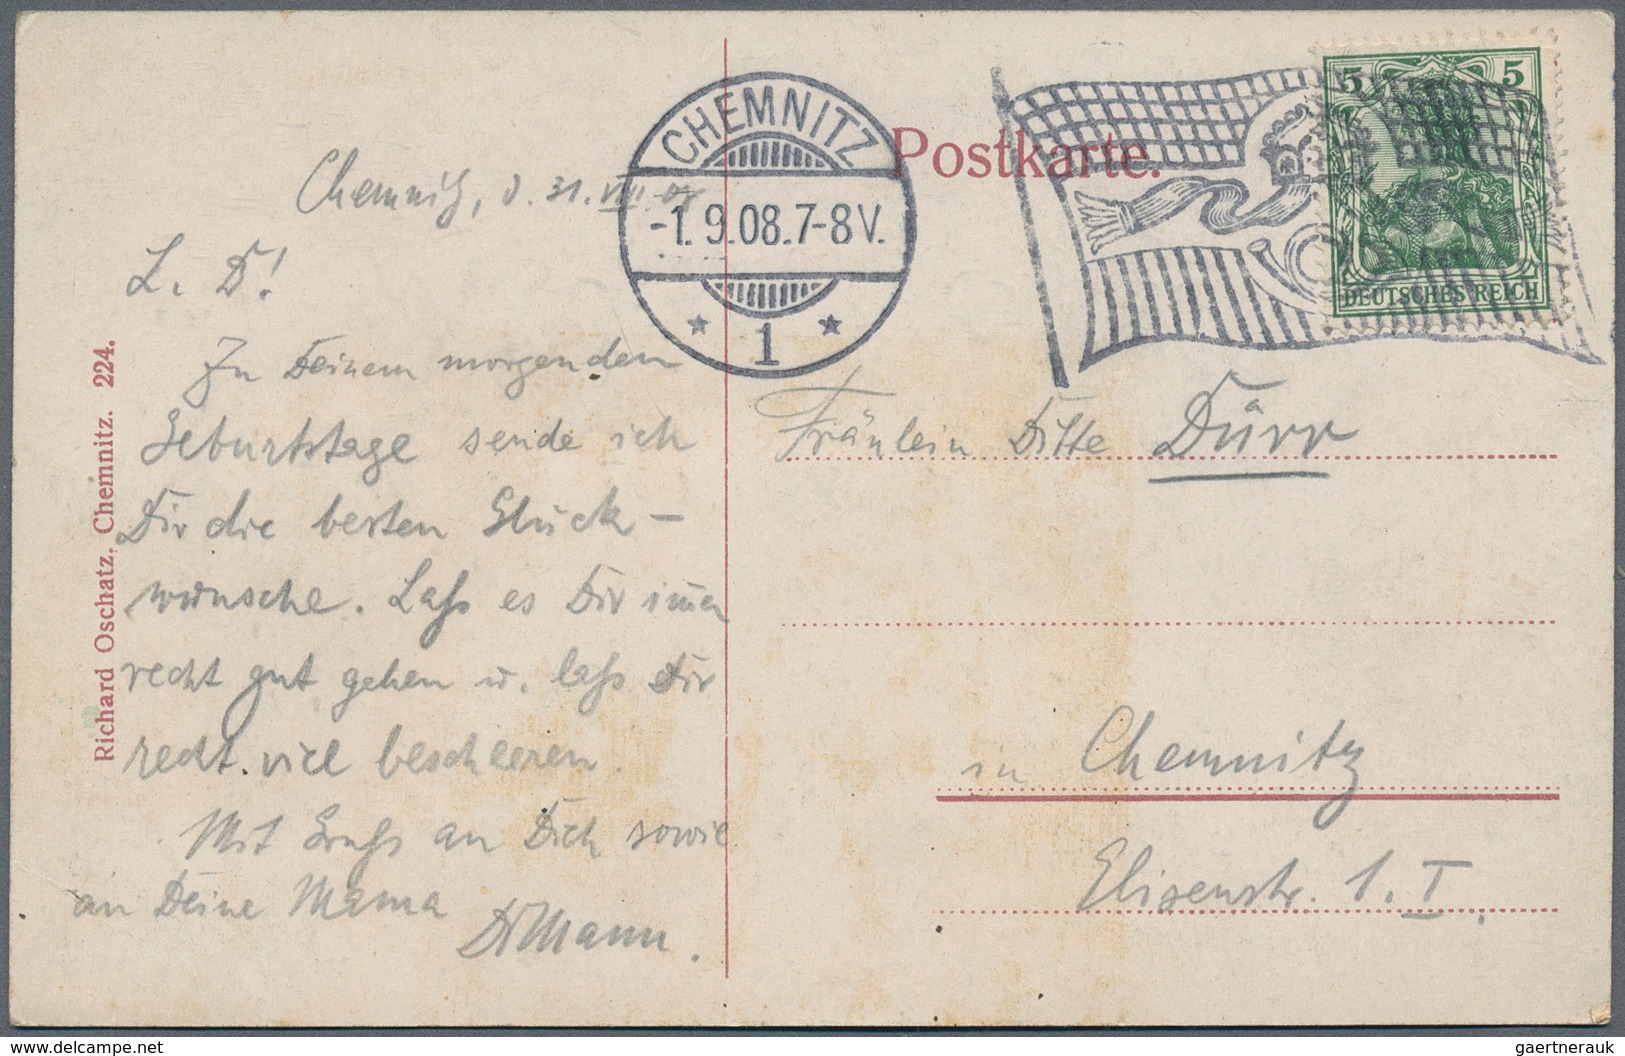 Postkarte.
CHEMNITZ
-1.9.08.7-8V.
* 1 *
5 5
DEUTSCHES REICH
Chemnitz, d. 31. VIII. 08
L. D!
Zu Deinem morgenden
Geburtstage sende ich
Dir die besten Glück-
wünsche. Laß es Dir immer
recht gut gehen u. laß Dir
recht viel bescheeren.
Mit Gruß an Dich sowie
an Deine Mama
Fräulein Ditte Dürr
in Chemnitz
Elisenstr. 1. I.
Richard Oschatz, Chemnitz. 224.
www.delcampe.net
gaertnerauk